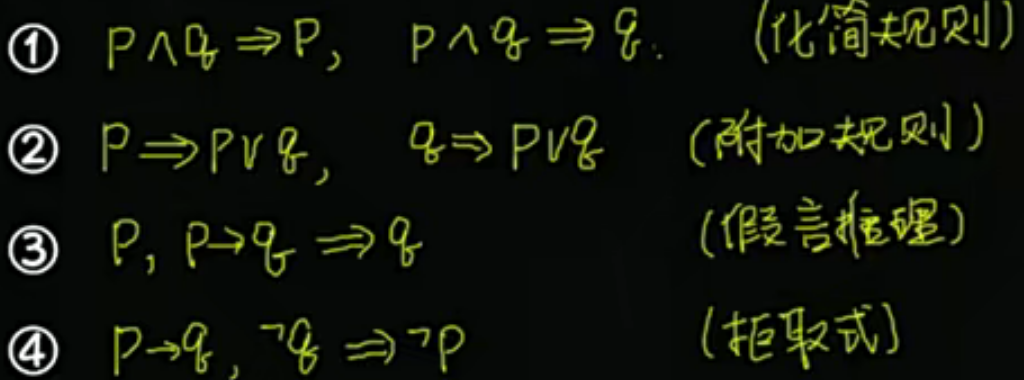 ① P∧q⇒P, P∧q⇒q. (化简规则)
② P⇒P∨q, q⇒P∨q (附加规则)
③ P, P→q⇒q (假言推理)
④ P→q, ¬q⇒¬P (拒取式)